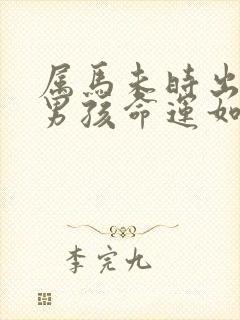 属馬未時出
男孩命運如
李完九